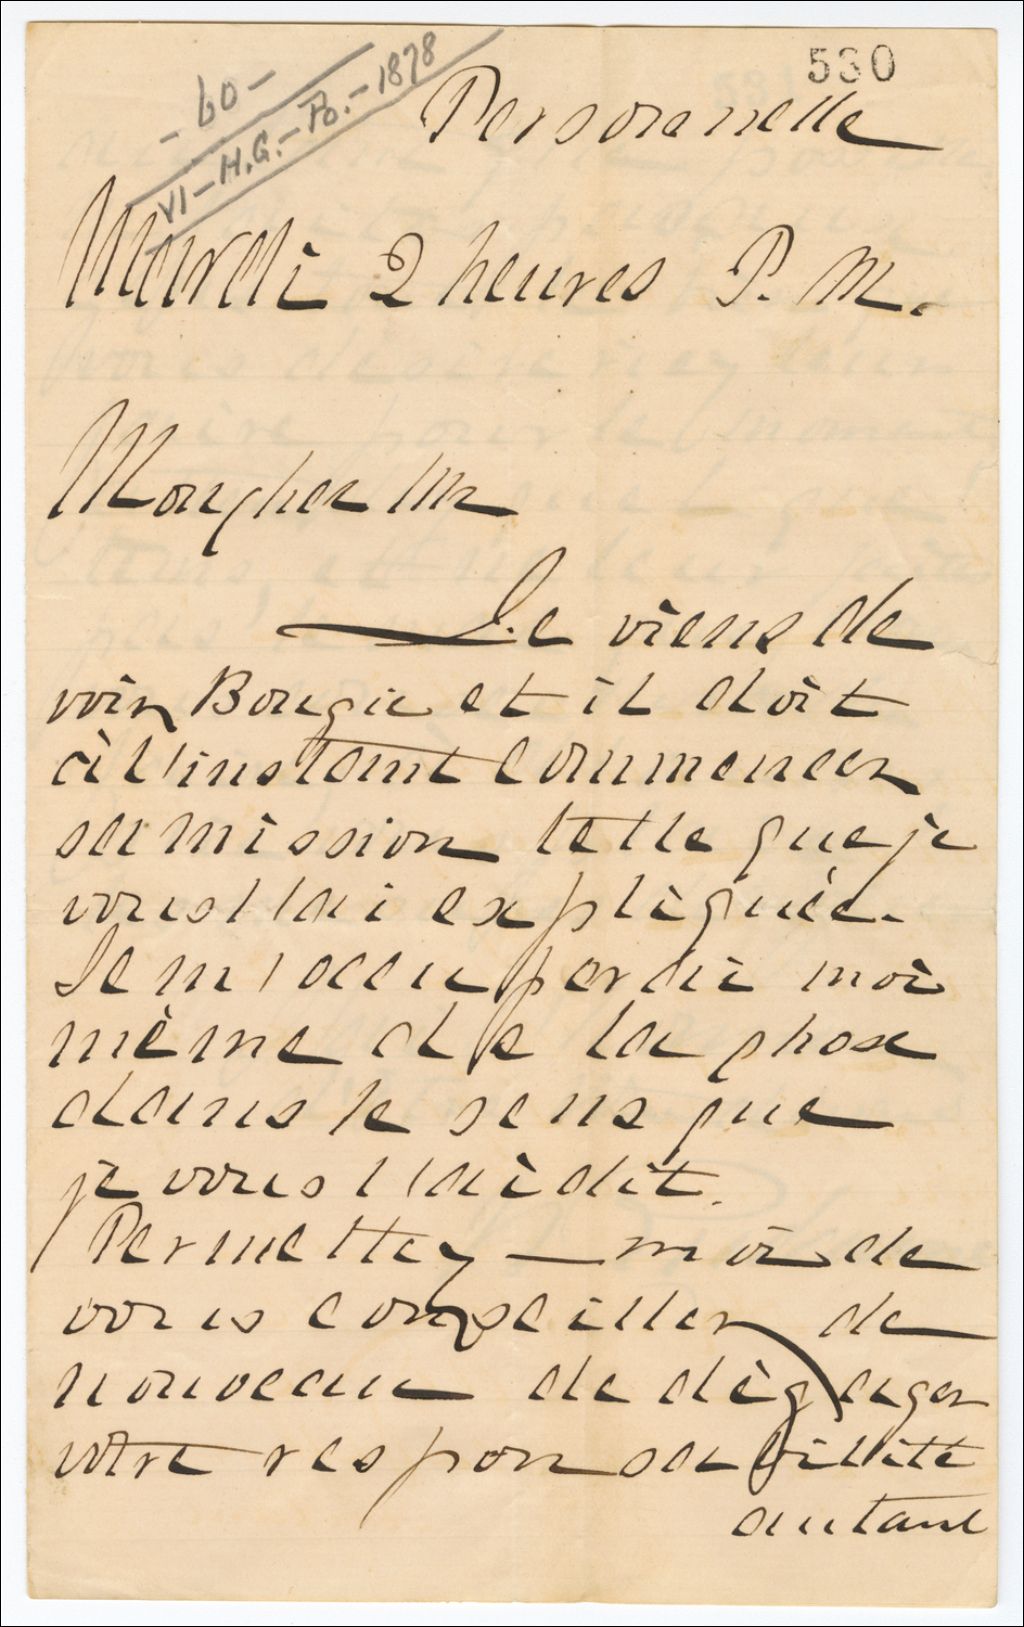 530
- 60 -
VI - H.G. - Po. - 1878
Personnelle
Mardi 2 heures P. M.
Mon cher Mr
Je viens de
voir Bougie et il doit
à l'instant commencer
sa mission telle que je
vous l'ai expliquée.
Je m'occuperdi moi
même de la chose
dans le sens que
je vous l'ai dit.
Permettez-moi de
vous conseiller de
nouveau de dégager
votre responsabillité
autant